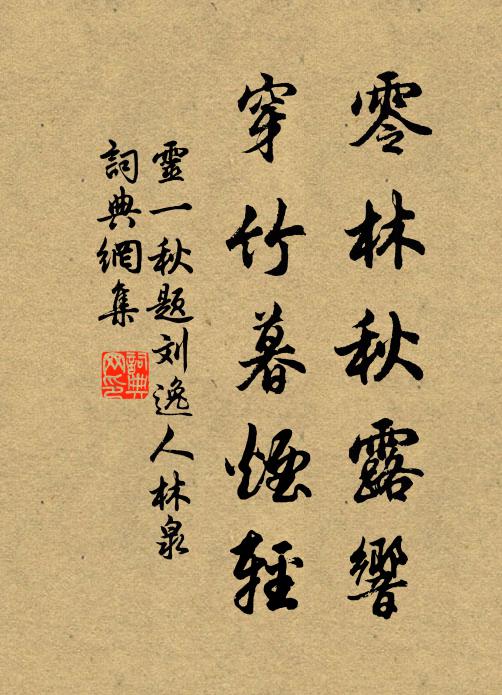 零林秋露響
穿竹暮煙輕
靈一秋题刘逸人林泉
詞典網集
詞典网印